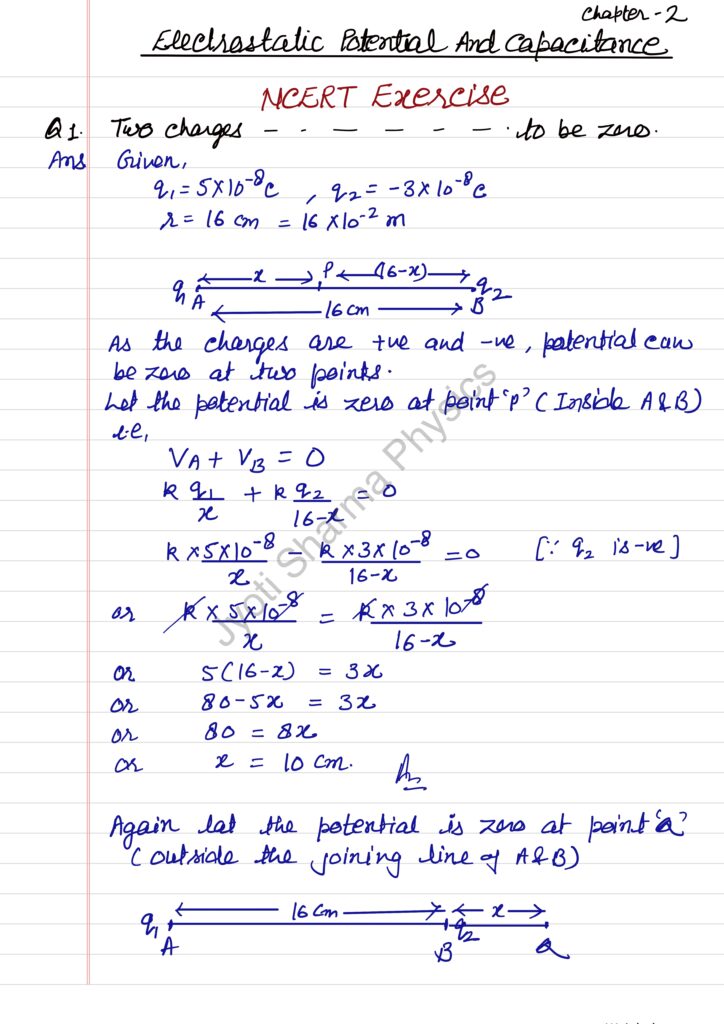 Chapter - 2
Electrostatic Potential And Capacitance
NCERT Exercise
Q1. Two charges - - - - - - - to be zero.
Ans Given,
q₁ = 5×10⁻⁸c , q₂ = -3×10⁻⁸c
r = 16 cm = 16 ×10⁻² m
x P (16-x)
q₁ A B q₂
16 cm
As the charges are +ve and -ve, potential can
be zero at two points.
Let the potential is zero at point 'P' (Inside A&B)
i.e,
V_A + V_B = 0
k q₁/x + k q₂/16-x = 0
k×5×10⁻⁸/x - k×3×10⁻⁸/16-x = 0 [∵ q₂ is -ve]
or k×5×10⁻⁸/x = k×3×10⁻⁸/16-x
or 5(16-x) = 3x
or 80-5x = 3x
or 80 = 8x
or x = 10 cm. Ans
Again let the potential is zero at point 'Q'
(outside the joining line of A&B)
16 cm x
q₁ A B q₂ Q
Jyoti Sharma Physics